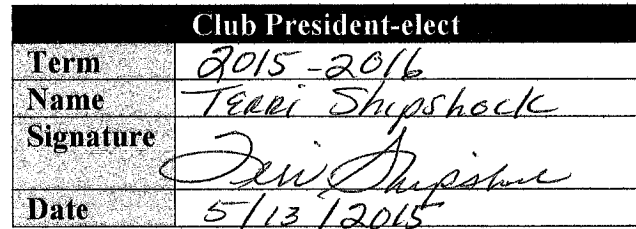 Club President-elect
Term 2015-2016
Name Terri Shipshock
Signature Terri Shipshock
Date 5/13/2015